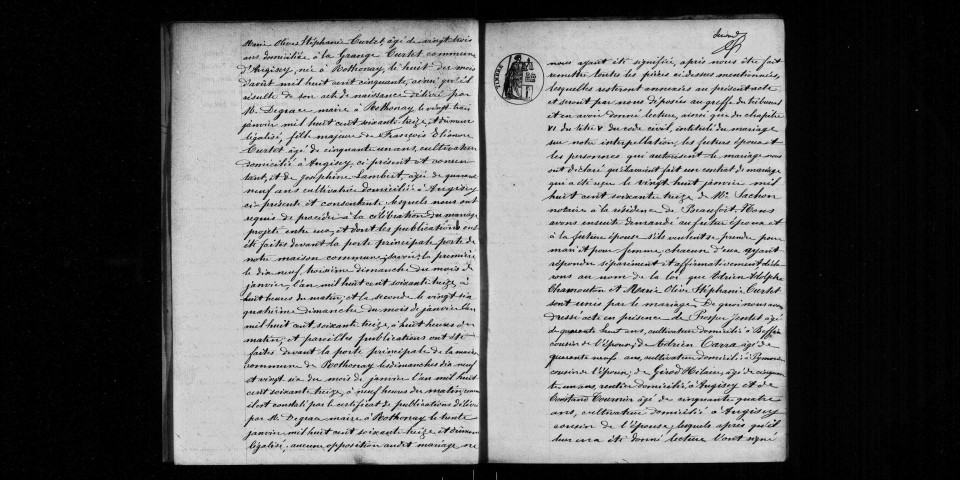 Marie Olive Stéphanie Curlet, âgé de vingt trois
ans domiciliée à la Grange Curtet commune
d'Augisey, née à Rothonay, le huit du mois
d'août mil huit cent cinquante, ainsi qu'il
résulte de son acte de naissance délivré par
M. Degrace maire à Rothonay le vingt
janvier mil huit cent soixante treize, et dûment
légalisé, fille majeure de François Eléonore
Curtet âgé de cinquante un ans, cultivateur
domicilié à Augisey, ci présent et consen
tant, et de Joséphine Lambert, âgée de quarante
neuf ans cultivatrice domiciliée à Augisey
ci présente et consentante, lesquels nous ont
requis de procéder à la célébration du mariage
projeté entre eux, et dont les publications ont
été faites devant la porte principale porte de
notre maison commune, savoir, la première
le dix neuf, troisième dimanche du mois de
janvier, l'an mil huit cent soixante treize, à
huit heures du matin, et la seconde le vingt six
quatrième dimanche du mois de janvier l'an
mil huit cent soixante treize, à huit heures du
matin, et pareilles publications ont été
faites devant la porte principale de la maison
commune de Rothonay les dimanches dix neuf
et vingt six du mois de janvier l'an mil huit
cent soixante treize, à neuf heures du matin, comme
il est constaté par le certificat de publications délivré
par M. Degrace maire à Rothonay le trente
janvier mil huit cent soixante treize et dûment
légalisé, aucune opposition audit mariage ne
TIMBRE
nous ayant été signifiée, après nous être fait
remettre toutes les pièces ci dessus mentionnées,
lesquelles resteront annexées au présent acte
et seront par nous déposées au greffe du tribunal
et en avoir donné lecture, ainsi que du chapitre
VI du titre V du code civil, intitulé du mariage
sur notre interpellation, les futurs époux et
les personnes qui autorisent le mariage nous
ont déclaré qu'il avaient fait un contrat de mariage
qui a été reçu le vingt huit janvier mil
huit cent soixante treize de Me Tachon
notaire à la résidence de Beaufort. Nous
avons ensuite demandé au futur époux et
à la future épouse s'ils veulent se prendre pour
mari et pour femme, chacun d'eux ayant
répondu séparément et affirmativement décla
rons au nom de la loi que Adrien Adolphe
Chamouton et Marie Olive Stéphanie Curtet
sont unis par le mariage. De quoi nous avons
dressé acte en présence de Prosper âgé
de quarante ans, cultivateur domicilié à
cousin de l'époux, de Adrien Carra âgé de
quarante neuf ans, cultivateur domicilié à
cousin de l'époux, de Girod Hilaire, âgé de cinquan
te un ans, rentier domicilié à Augisey et de
Constant Tournier âgé de cinquante quatre
ans, cultivateur domicilié à Augisey
cousin de l'épouse, lesquels après qu'il
leur en a été donné lecture l'ont signé